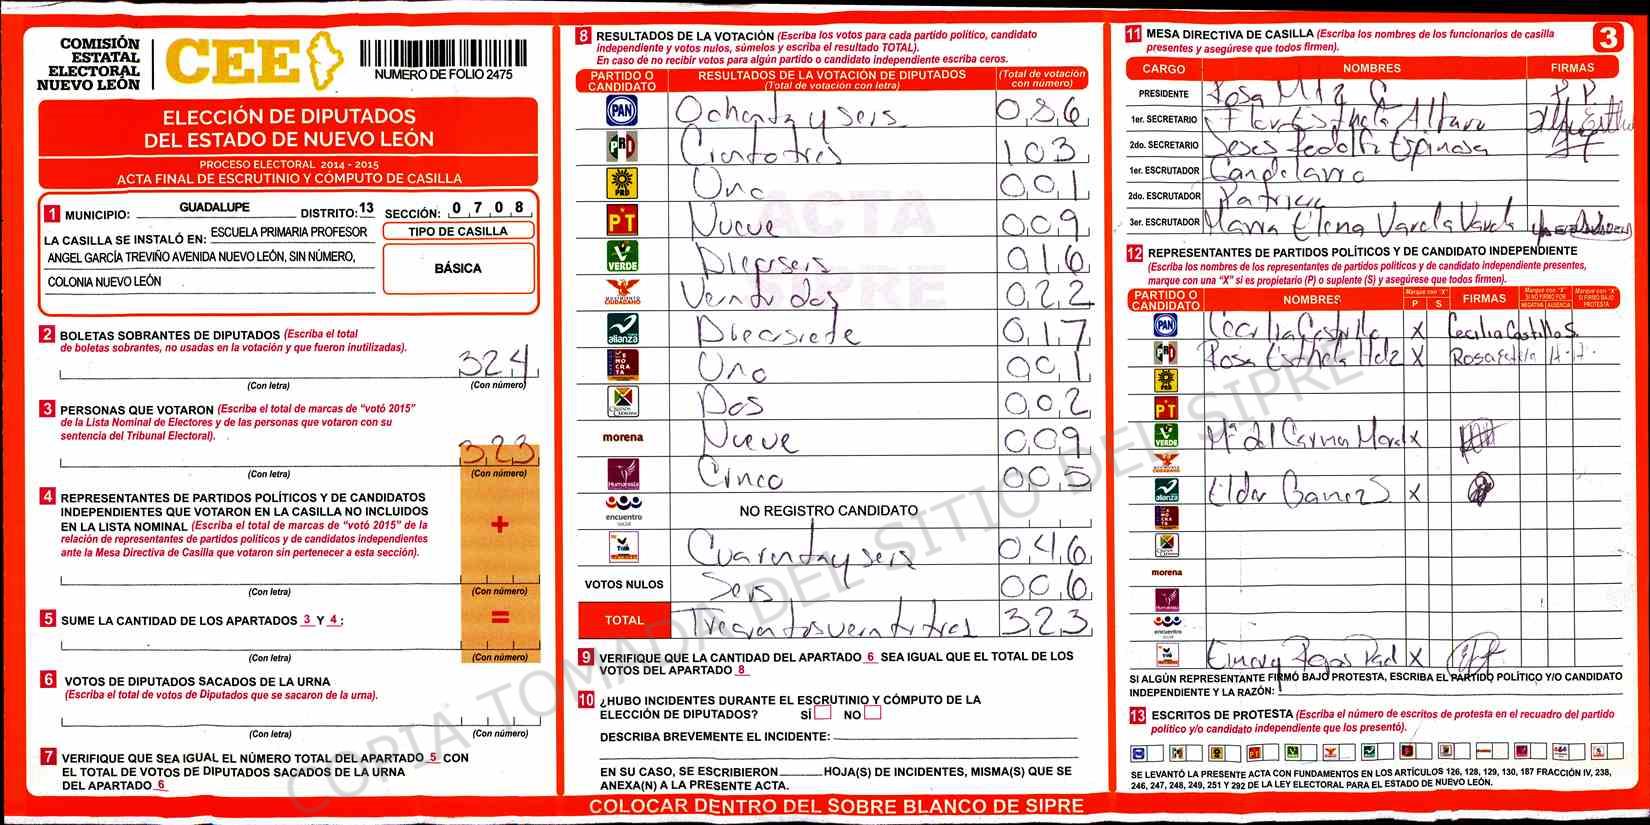 COMISIÓN
ESTATAL
ELECTORAL
NUEVO LEÓN
CEE
NUMERO DE FOLIO 2475
ELECCIÓN DE DIPUTADOS
DEL ESTADO DE NUEVO LEÓN
PROCESO ELECTORAL 2014 - 2015
ACTA FINAL DE ESCRUTINIO Y CÓMPUTO DE CASILLA
1 MUNICIPIO: GUADALUPE DISTRITO: 13 SECCIÓN: 0 7 0 8
LA CASILLA SE INSTALÓ EN: ESCUELA PRIMARIA PROFESOR
ANGEL GARCÍA TREVIÑO AVENIDA NUEVO LEÓN, SIN NÚMERO,
COLONIA NUEVO LEÓN
TIPO DE CASILLA
BÁSICA
2 BOLETAS SOBRANTES DE DIPUTADOS (Escriba el total
de boletas sobrantes, no usadas en la votación y que fueron inutilizadas).
324
(Con letra) (Con número)
3 PERSONAS QUE VOTARON (Escriba el total de marcas de "votó 2015"
de la Lista Nominal de Electores y de las personas que votaron con su
sentencia del Tribunal Electoral).
323
(Con letra) (Con número)
4 REPRESENTANTES DE PARTIDOS POLÍTICOS Y DE CANDIDATOS
INDEPENDIENTES QUE VOTARON EN LA CASILLA NO INCLUIDOS
EN LA LISTA NOMINAL (Escriba el total de marcas de "votó 2015" de la
relación de representantes de partidos políticos y de candidatos independientes
ante la Mesa Directiva de Casilla que votaron sin pertenecer a esta sección).
+
(Con letra) (Con número)
5 SUME LA CANTIDAD DE LOS APARTADOS 3 Y 4:
=
(Con letra) (Con número)
6 VOTOS DE DIPUTADOS SACADOS DE LA URNA
(Escriba el total de votos de Diputados que se sacaron de la urna).
(Con letra) (Con número)
7 VERIFIQUE QUE SEA IGUAL EL NÚMERO TOTAL DEL APARTADO 5 CON
EL TOTAL DE VOTOS DE DIPUTADOS SACADOS DE LA URNA
DEL APARTADO 6
8 RESULTADOS DE LA VOTACIÓN (Escriba los votos para cada partido político, candidato
independiente y votos nulos, súmelos y escriba el resultado TOTAL).
En caso de no recibir votos para algún partido o candidato independiente escriba ceros.
PARTIDO O CANDIDATO
RESULTADOS DE LA VOTACIÓN DE DIPUTADOS
(Total de votación con letra)
(Total de votación con número)
PAN Ochenta y seis 086
PRD Ciento tres 103
PRD Uno 001
PT Nueve 009
VERDE Dieciseis 016
MOVIMIENTO CIUDADANO Veintidos 022
alianza Diecisiete 017
DEMOCRATA Uno 001
Dos 002
morena Nueve 009
Humanista Cinco 005
encuentro social NO REGISTRO CANDIDATO
Cuarenta y seis 046
VOTOS NULOS Seis 006
TOTAL Trecientos veintitres 323
9 VERIFIQUE QUE LA CANTIDAD DEL APARTADO 6 SEA IGUAL QUE EL TOTAL DE LOS
VOTOS DEL APARTADO 8
10 ¿HUBO INCIDENTES DURANTE EL ESCRUTINIO Y CÓMPUTO DE LA
ELECCIÓN DE DIPUTADOS? SÍ NO
DESCRIBA BREVEMENTE EL INCIDENTE:
EN SU CASO, SE ESCRIBIERON HOJA(S) DE INCIDENTES, MISMA(S) QUE SE
ANEXA(N) A LA PRESENTE ACTA.
COLOCAR DENTRO DEL SOBRE BLANCO DE SIPRE
ACTA
SIPRE
COPIA TOMADA DEL SITIO DEL SIPRE
11 MESA DIRECTIVA DE CASILLA (Escriba los nombres de los funcionarios de casilla
presentes y asegúrese que todos firmen).
3
CARGO NOMBRES FIRMAS
PRESIDENTE Rosa Mtz C
1er. SECRETARIO Flor Esthela Alfaro
2do. SECRETARIO Espinosa
1er. ESCRUTADOR Candelario
2do. ESCRUTADOR Patricia
3er. ESCRUTADOR Maria Elena Varela Varela
12 REPRESENTANTES DE PARTIDOS POLÍTICOS Y DE CANDIDATO INDEPENDIENTE
(Escriba los nombres de los representantes de partidos politicos y de candidato independiente presentes,
marque con una "X" si es propietario (P) o suplente (S) y asegúrese que todos firmen).
PARTIDO O CANDIDATO
NOMBRES
Marque con "X"
P S
FIRMAS
Marque con "X" SI NO FIRMO POR
NEGATIVA AUSENCIA
Marque con "X" SI FIRMO BAJO PROTESTA
PAN Cecilia Castillo X Cecilia Castillo S
PRD Rosa Esthela Hdz X Rosa Estela H.
PRD
PT
VERDE Ma del Carmen X
alianza Elda X
morena
encuentro
X
SI ALGÚN REPRESENTANTE FIRMÓ BAJO PROTESTA, ESCRIBA EL PARTIDO POLÍTICO Y/O CANDIDATO
INDEPENDIENTE Y LA RAZÓN:
13 ESCRITOS DE PROTESTA (Escriba el número de escritos de protesta en el recuadro del partido
político y/o candidato independiente que los presentó).
SE LEVANTÓ LA PRESENTE ACTA CON FUNDAMENTOS EN LOS ARTÍCULOS 126, 128, 129, 130, 187 FRACCIÓN IV, 238,
246, 247, 248, 249, 251 Y 292 DE LA LEY ELECTORAL PARA EL ESTADO DE NUEVO LEÓN.